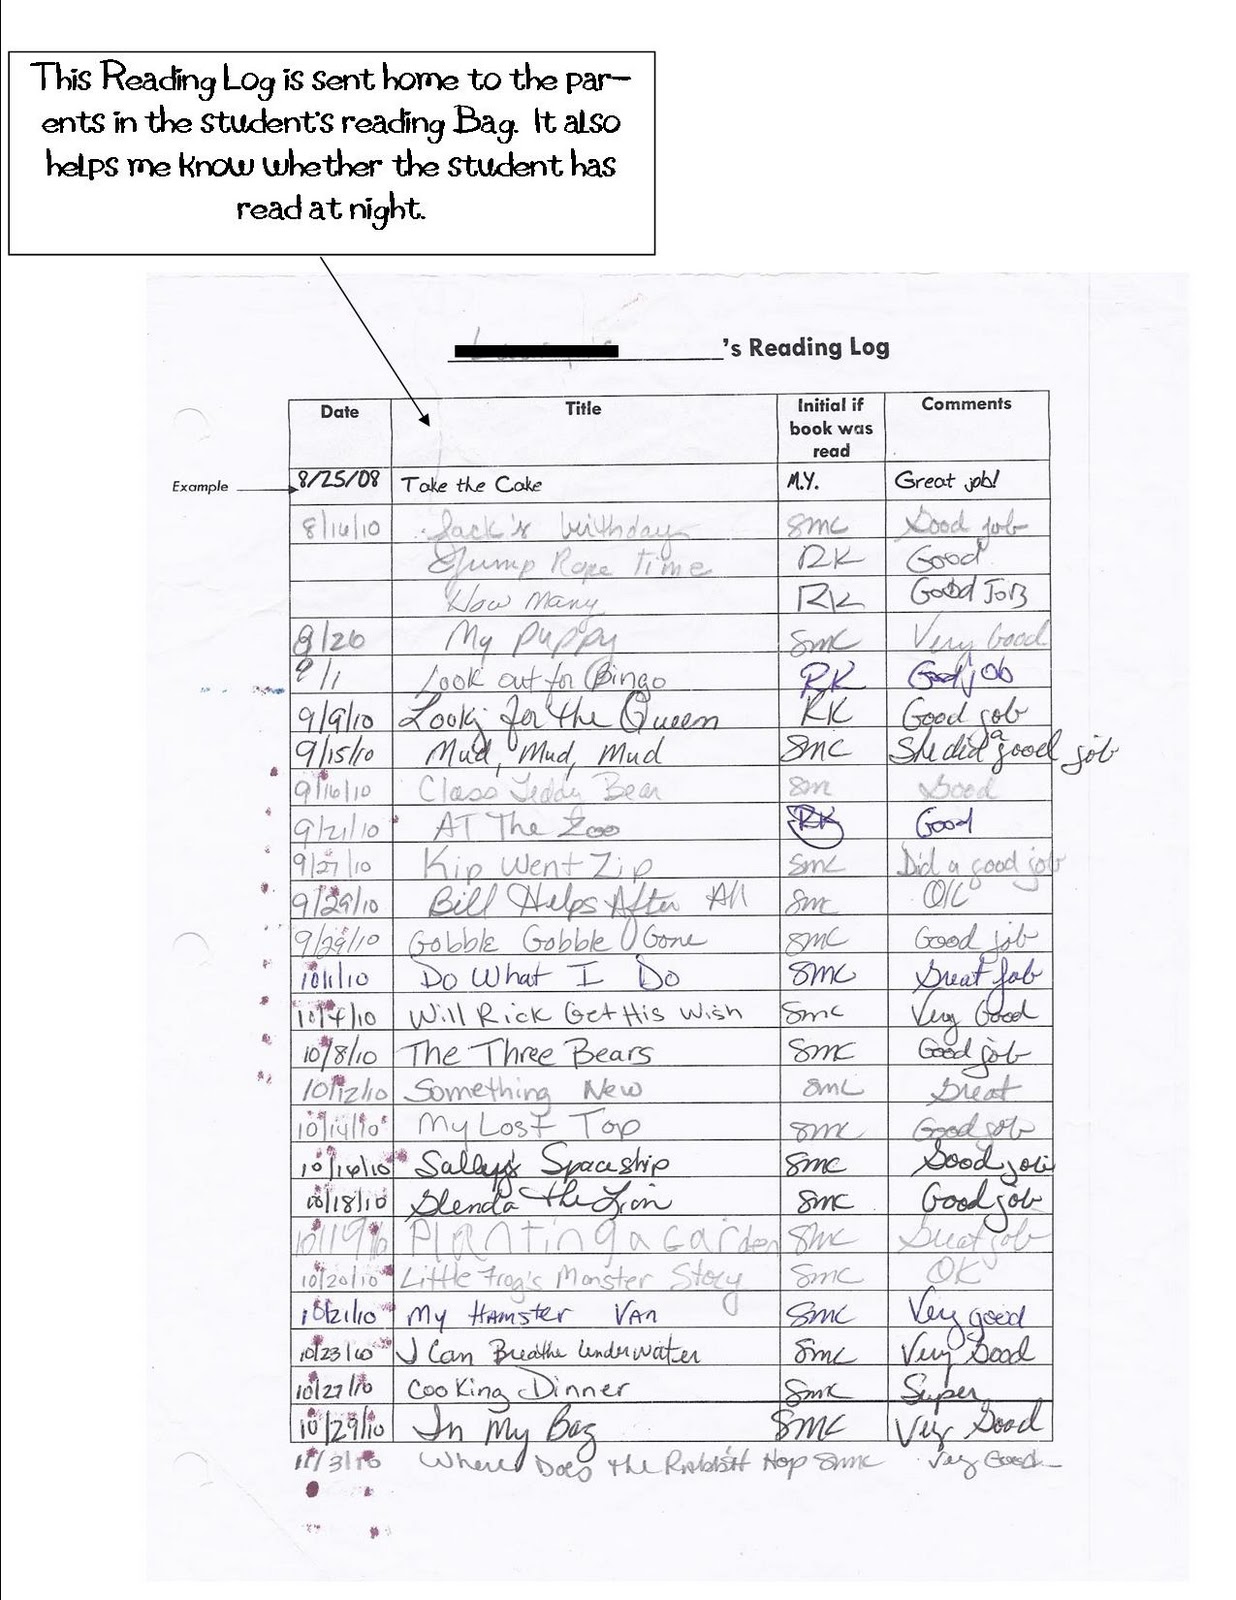 This Reading Log is sent home to the par-
ents in the student's reading Bag. It also
helps me know whether the student has
read at night.
's Reading Log
Date Title Initial if book was read Comments
Example 8/25/08 Take the Cake M.Y. Great job!
8/16/10 Jack's birthday SMC Good job
Jump Rope Time RK Good
How Many RK Good Job
8/26 My Puppy SMC Very Good
9/1 Look out for Bingo RK Good job
9/9/10 Looking for the Queen RK Good job
9/15/10 Mud, Mud, Mud SMC She did a good job
9/16/10 Class Teddy Bear SM Good
9/21/10 AT The Zoo RK Good
9/27/10 Kip Went Zip SMC Did a good job
9/29/10 Bill Helps After All SMC OK
9/29/10 Gobble Gobble Gone SMC Good job
10/1/10 Do What I Do SMC Great job
10/4/10 Will Rick Get His Wish SMC Very Good
10/8/10 The Three Bears SMC Good job
10/12/10 Something New SMC Great
10/14/10 My Lost Top SMC Good job
10/16/10 Sally's Spaceship SMC Good job
10/18/10 Glenda the Lion SMC Good job
10/19/10 Planting a Garden SMC Great job
10/20/10 Little Frog's Monster Story SMC OK
10/21/10 My Hamster Van SMC Very good
10/23/10 I Can Breathe Underwater SMC Very Good
10/27/10 Cooking Dinner SMC Super
10/29/10 In My Bag SMC Very Good
11/3/10 Where Does the Rabbit Hop SMC Very Good